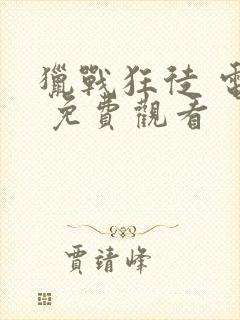 獵戰狂徒
免費觀看
賈靖峰